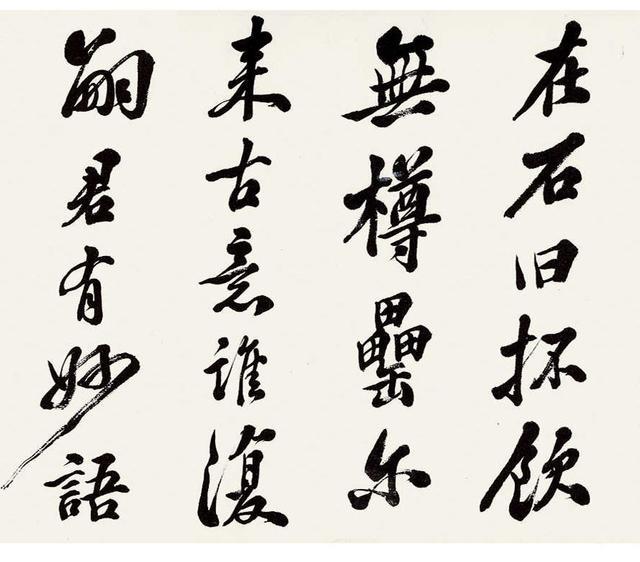 在石旧抔飲
無樽罍尔
来古意誰復
嗣君有妙語